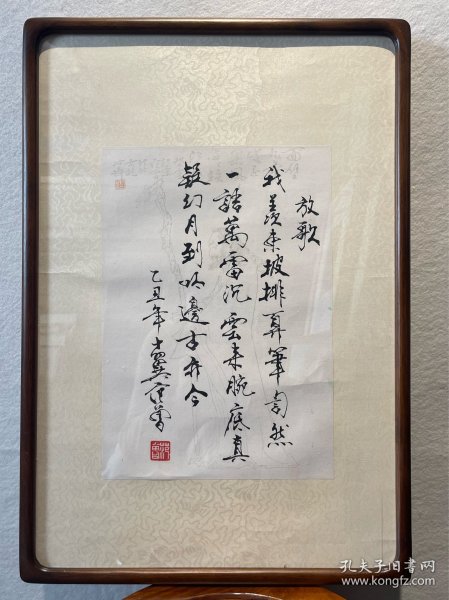 放歌
我羡東坡排奡筆訇然
一語萬雷沉雲来腕底真
疑幻月到吟邊古亦今
乙丑年十翼范曾
孔夫子旧书网
www.kongfz.com